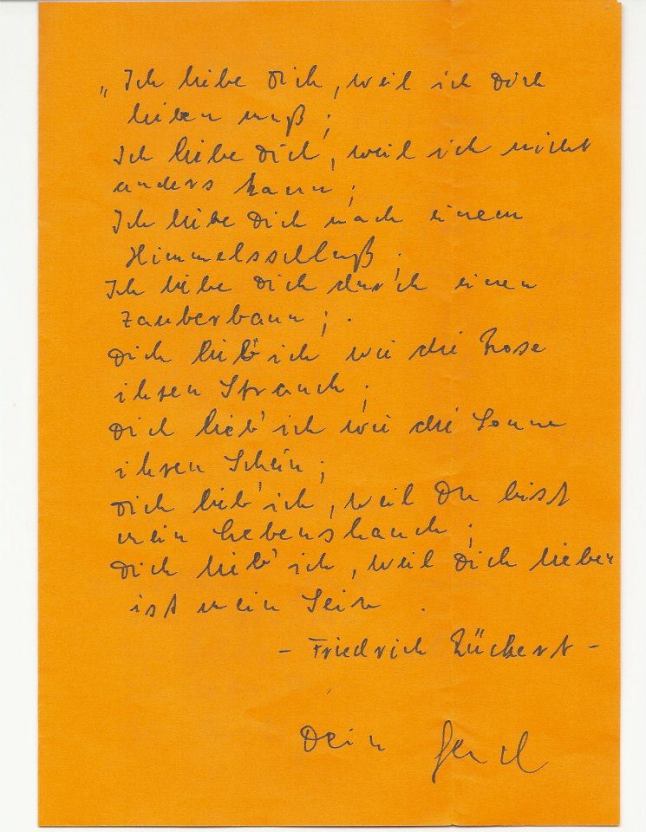 „Ich liebe Dich, weil ich Dich
lieben muß;
Ich liebe Dich, weil ich nicht
anders kann;
Ich liebe Dich nach einem
Himmelsschluß.
Ich liebe Dich durch einen
Zauberbann;.
Dich lieb' ich wie die Rose
ihren Strauch;
Dich lieb' ich wie die Sonne
ihren Schein;
Dich lieb' ich, weil Du bist
mein Lebenshauch;
Dich lieb' ich, weil Dich lieben
ist mein Sein.
- Friedrich Rückert -
Dein